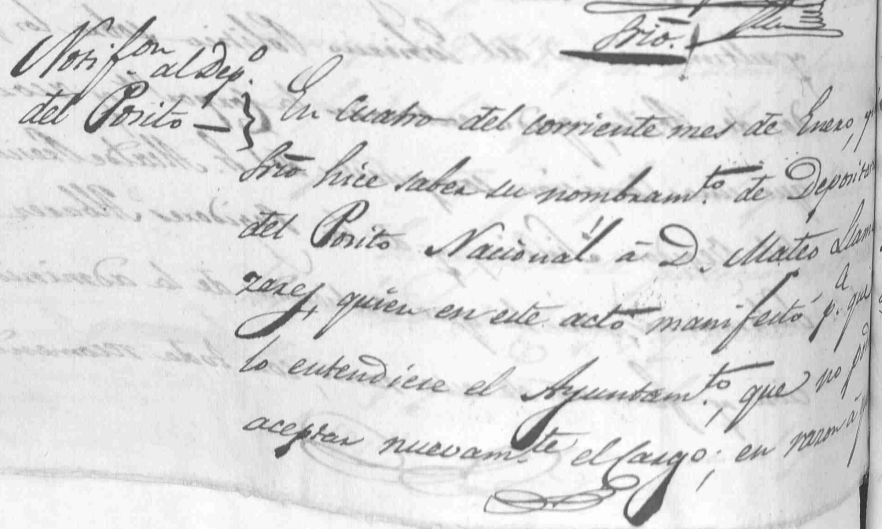 Srio.
Notifon al Depo.
del Posito
En Cuatro del corriente mes de Enero, yo
Srio hice saber su nombramto. de Depositar
del Posito Nacional á D. Mateo Llam
zares, quien en este acto manifestó pa. que
lo entendiese el Ayuntamto, que no pod
aceptar nuevamte. el Cargo; en razon á